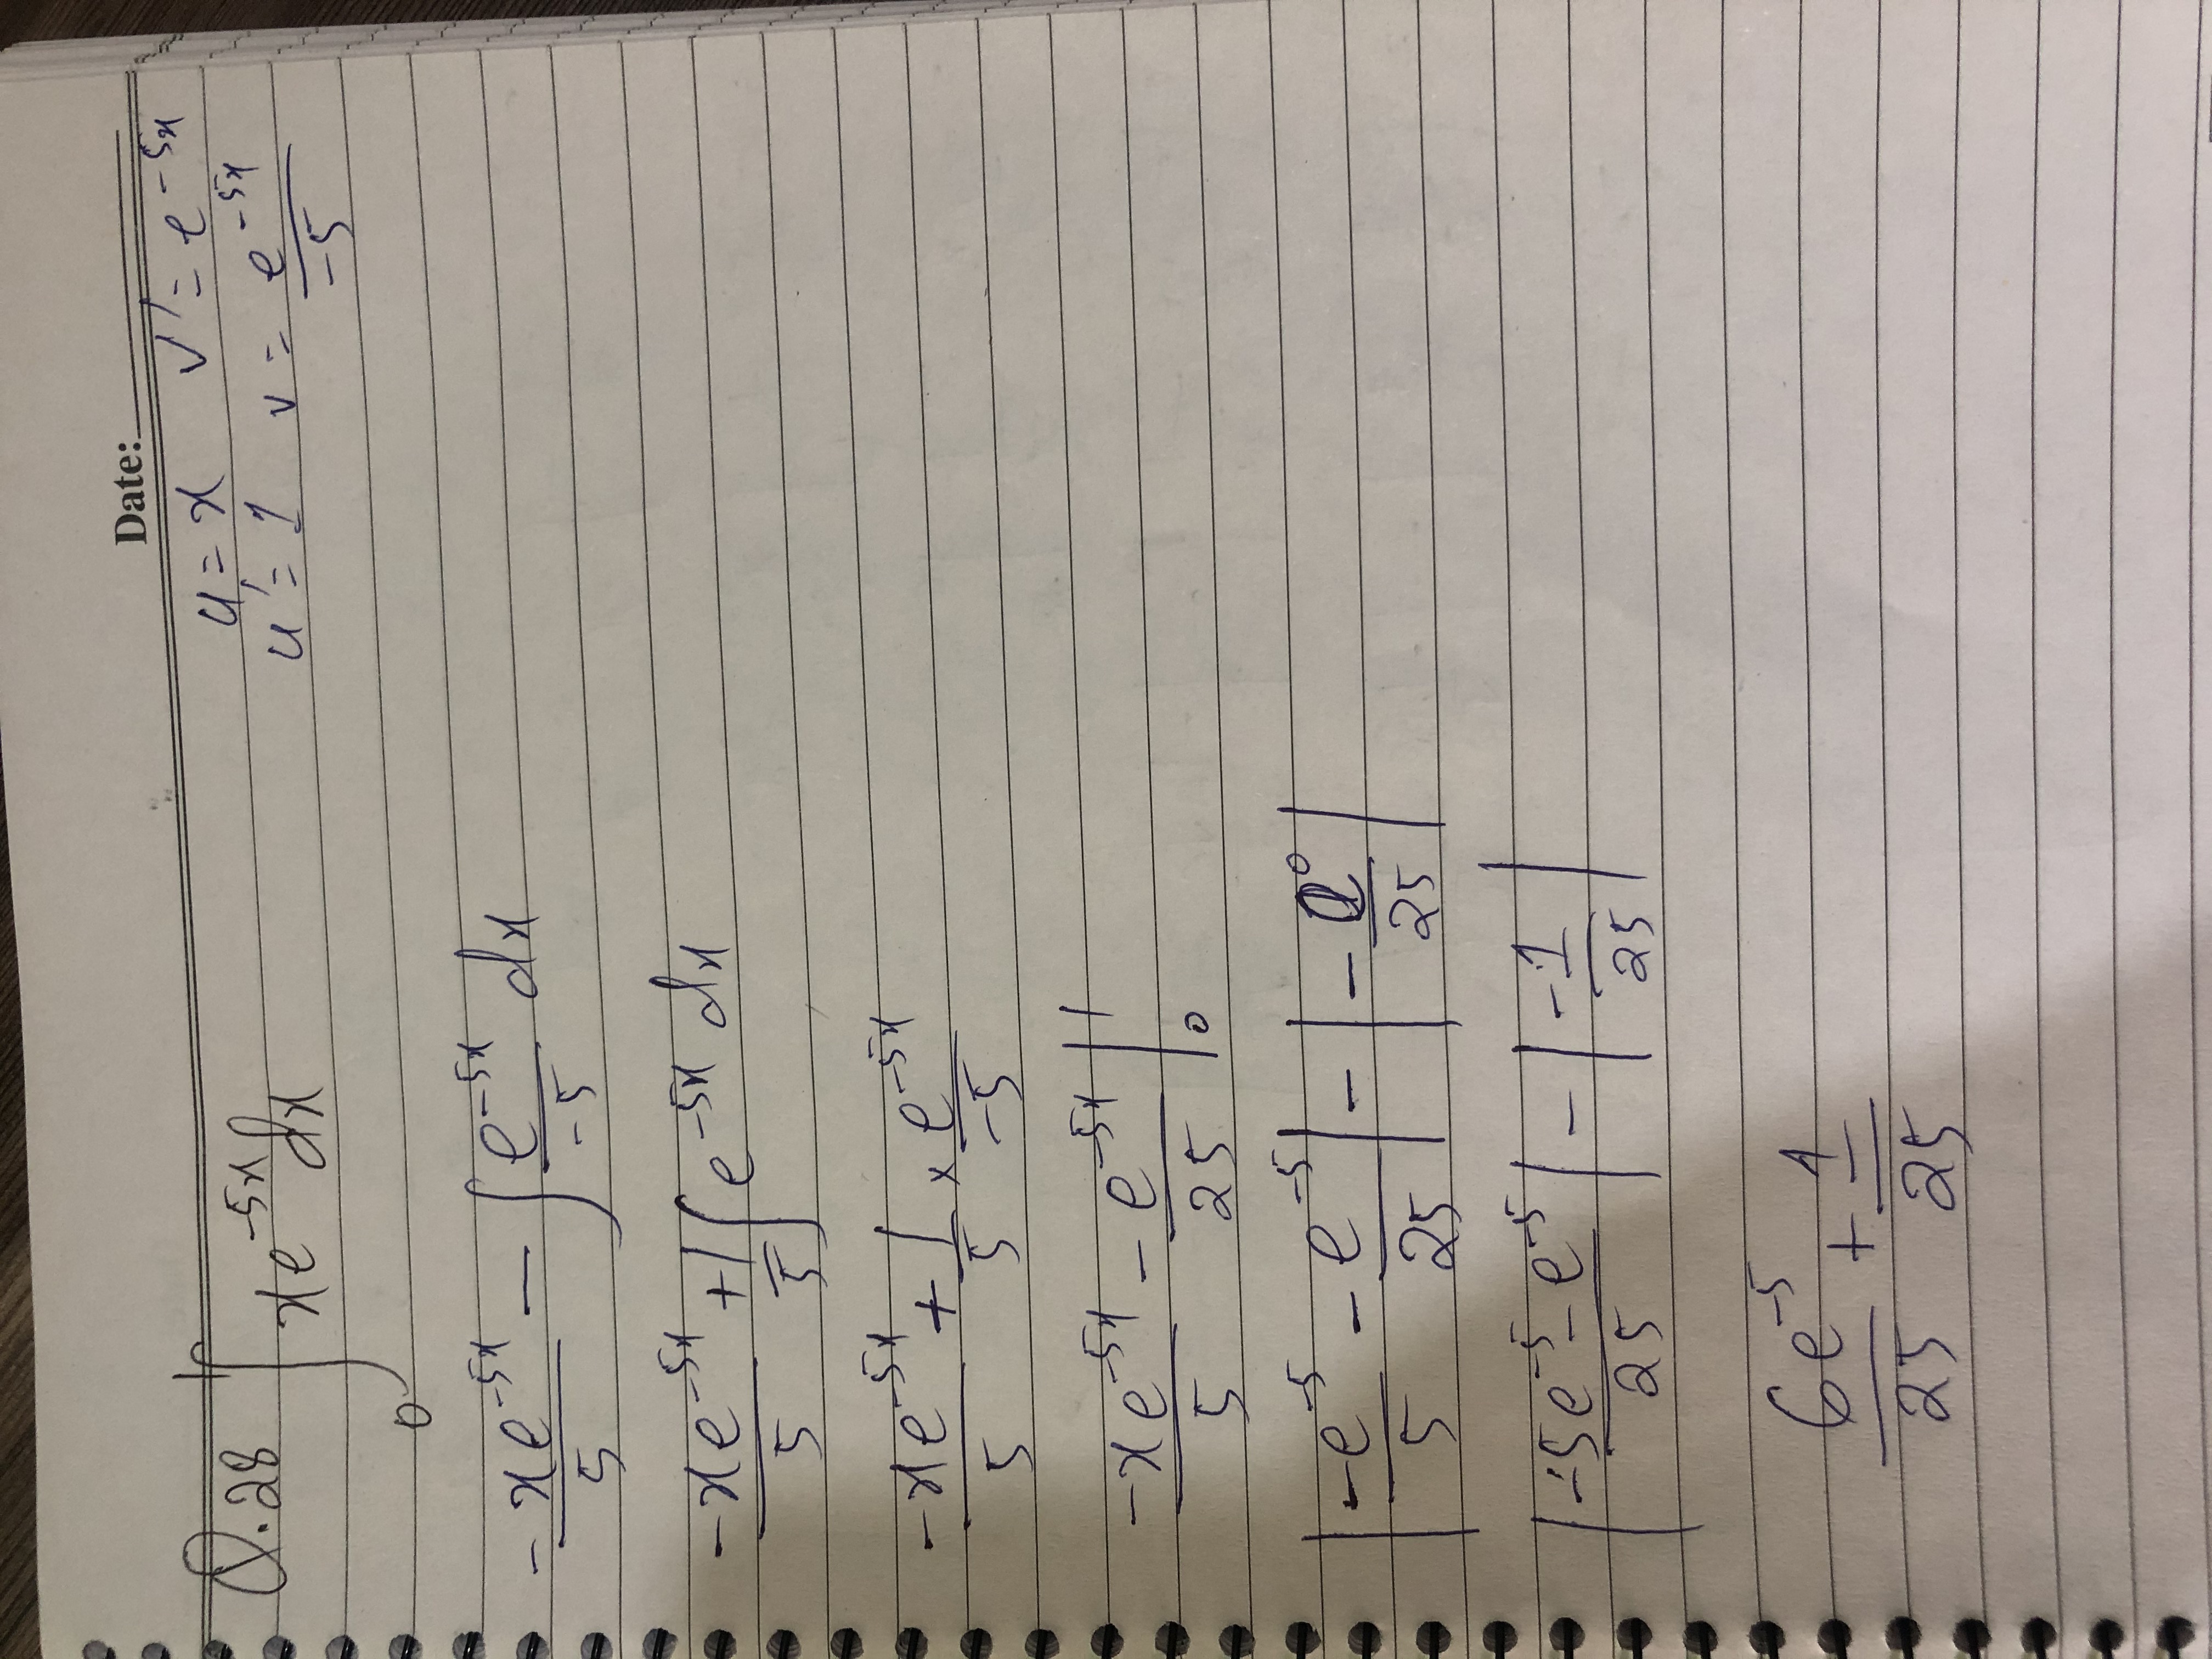 Date:
Q.28 ∫₀¹ xe^{-5x} dx
u = x    v' = e^{-5x}
u' = 1    v = \frac{e^{-5x}}{-5}
\frac{-xe^{-5x}}{5} - ∫ \frac{e^{-5x}}{-5} dx
\frac{-xe^{-5x}}{5} + \frac{1}{5} ∫ e^{-5x} dx
\frac{-xe^{-5x}}{5} + \frac{1}{5} × \frac{e^{-5x}}{-5}
\frac{-xe^{-5x}}{5} - \frac{e^{-5x}}{25} |₀¹
| \frac{-e^{-5}}{5} - \frac{e^{-5}}{25} | - | - \frac{e^{0}}{25} |
| \frac{-5e^{-5} - e^{-5}}{25} | - | \frac{-1}{25} |
\frac{6e^{-5}}{25} + \frac{1}{25}